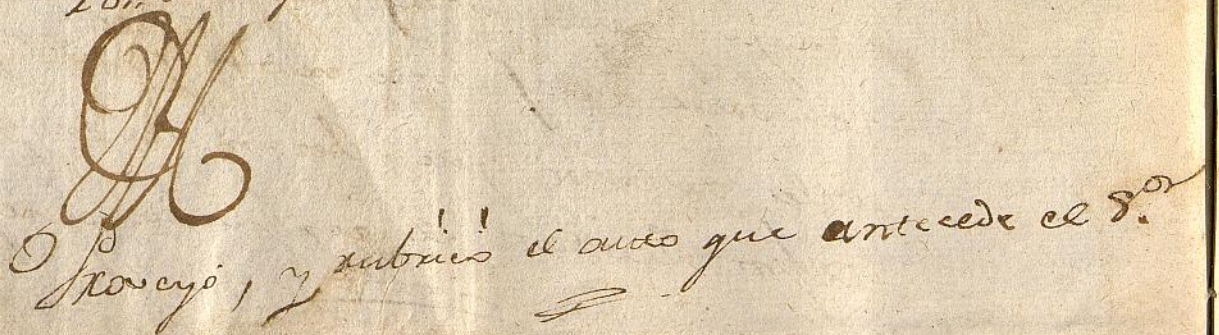 Proveyó, y rubricó el auto que antecede el S.or